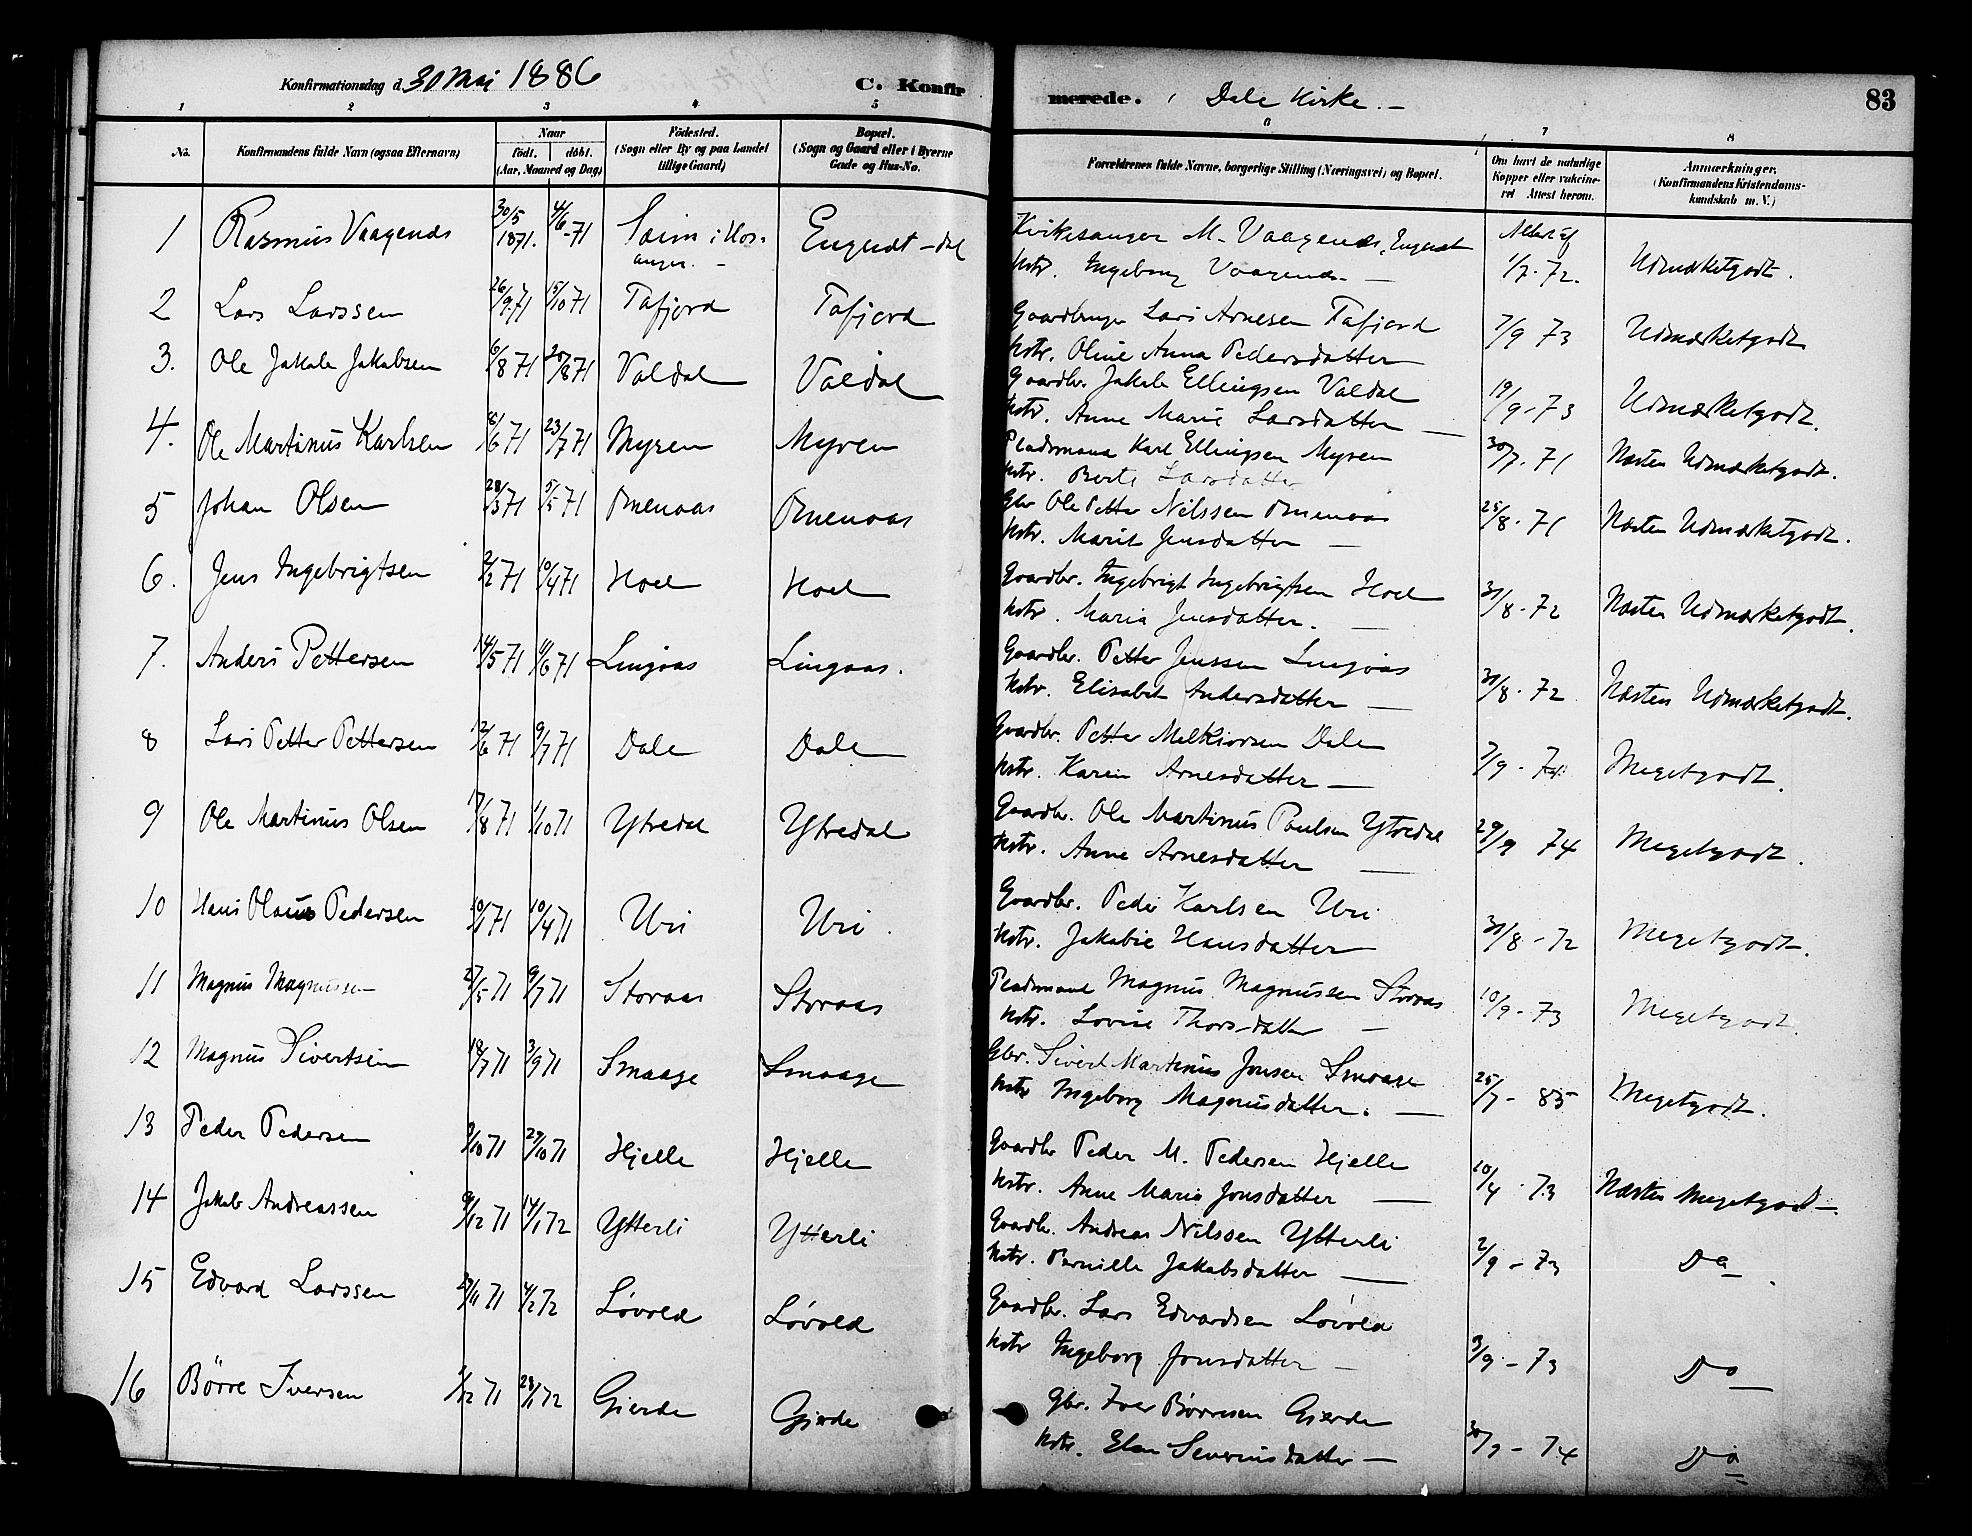 Konfirmationsdag d. 30 Mai 1886
C. Konfirmerede. i Dale Kirke. -
83
1 2 3 4 5 6 7 8
No.
Konfirmandens fulde Navn (ogsaa Efternavn)
Naar
födt. döbt.
(Aar, Maaned og Dag)
Födested.
(Sogn eller By og paa Landet
tillige Gaard)
Bopæl.
(Sogn og Gaard eller i Byerne
Gade og Hus-No.
Forældrenes fulde Navne, borgerlige Stilling (Næringsvei) og Bopæl.
Om havt de naturlige
Kopper eller vakcine-
ret Attest herom.
Anmærkninger.
(Konfirmandens Kristendoms-
kundskab m. V.)
1 Rasmus Vaagenæs 30/5 1871. 4/6 -71 i Hosanger. - Engeset - dal Kirkesanger M. Vaagenæs, Engeset Attest af 1/7. 72. Udmærketgodt.
Hstr. Ingeborg Vaagenæs -
2 Lars Larssen 26/9 71 15/10 71 Tafjord Tafjord Gaardbruger Lars Arnesen Tafjord 7/9 73 Udmærketgodt
Hstr. Oline Anna Pedersdatter
3. Ole Jakob Jakobsen 6/8 71 20/8 71 Valdal Valdal Gaardbr. Jakob Ellingsen Valdal 19/9 - 73 Udmærketgodt.
Hstr. Anne Marie Larsdatter -
4. Ole Martinus Karlsen 8/6 71 23/7 71 Myren Myren Pladsmand Karl Ellingsen Myren 30/7. 71 Næsten Udmærketgodt.
Hstr. Berte Larsdatter
5 Johan Olsen 28/3 71 5/5 71 Omenaas Omenaas Gbr Ole Petter Nilssen Omenaas 25/8. 71 Næsten Udmærketgodt.
Hstr. Marit Jensdatter -
6. Jens Ingebrigtsen 2/2 71 10/4 71 Hoel Hoel Gaardbr. Ingebrigt Ingebrigtsen Hoel 31/8. 72 Næsten Udmærketgodt.
Hstr. Maria Jensdatter. -
7. Anders Pettersen 14/5 71 11/6 71 Lingaas Lingaas. Gaardbr. Petter Jenssen Lingaas 31/8. 72 Næsten Udmærketgodt.
Hstr. Elisabet Andersdatter -
8 Lars Petter Pettersen 12/6 71 9/7 71 Dale Dale Gaardbr. Petter Melkiorsen Dale 7/9 - 74. Megetgodt.
Hstr. Karen Arnesdatter -
9 Ole Martinus Olsen 17/8 71 1/10 71 Ytredal Ytredal Gaardbr. Ole Martinus Paulsen Ytredal 29/9 74 Megetgodt.
Hstr. Anne Arnesdatter -
10 Hans Olaus Pedersen 10/1 71 10/4 71 Uri Uri. Gaardbr. Peder Karlsen Uri 30/8 - 72 Megetgodt.
Hstr. Jakobie Hansdatter
11 Magnus Magnussen 27/5 71 9/7 71 Storaas Storaas Pladsmand Magnus Magnussen Storaas 10/9 - 73 Megetgodt.
Hstr. Lovise Thorsdatter -
12 Magnus Sivertsen 18/7 71 3/9 71 Smaage Smaage Gbr. Sivert Martinus Jonsen Smaage 25/7 - 85 Megetgodt.
Hstr Ingeborg Magnusdatter. -
13 Peder Pedersen 9/10 71 29/10 71 Hjelle Hjelle Gaardbr Peder M. Pedersen Hjelle 10/4. 73 Næsten Megetgodt -.
Hstr. Anne Maria Jonsdatter -
14 Jakob Andreassen 9/12 71 14/1 72 Ytterli Ytterli Gaardbr. Andreas Nilssen Ytterli 2/9 - 73 Do.
Hstr. Pernille Jakobsdatter -
15 Edvard Larssen 23/11 71 4/2 72 Løvold Løvold Gaardbr. Lars Edvardsen Løvold 3/9 - 73 Do
Hstr Ingeborg Jonsdatter -
16 Börre Iversen 1/12 71 28/1 72 Gierde Gjerde Gbr. Iver Børresen Gierde 30/9 - 74 Do
Hstr. Elen Severinsdatter -